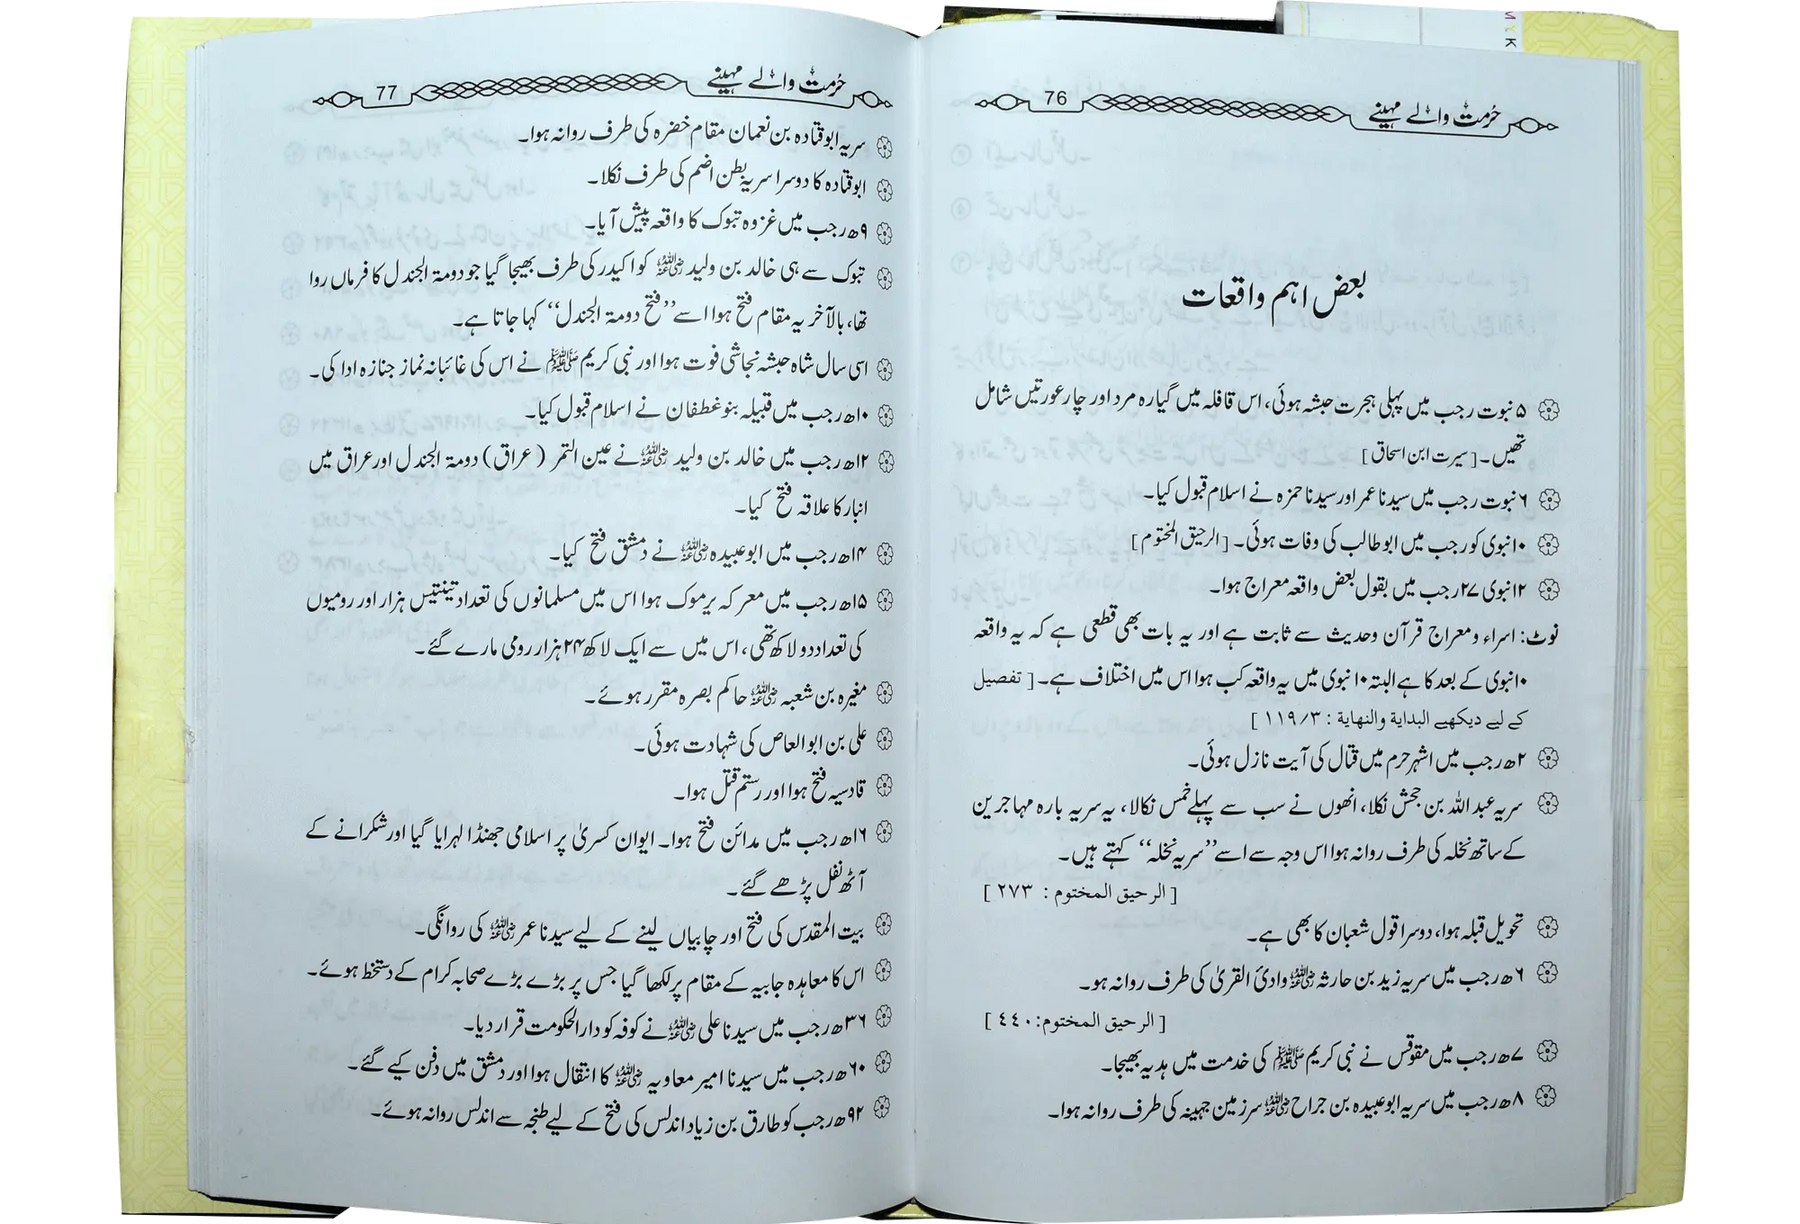 حُرمت والے مہینے
76
بعض اہم واقعات
۵ نبوت رجب میں پہلی ہجرت حبشہ ہوئی، اس قافلہ میں گیارہ مرد اور چار عورتیں شامل
تھیں۔ [سیرت ابن اسحاق]
۶ نبوت رجب میں سیدنا عمر اور سیدنا حمزہ نے اسلام قبول کیا۔
۱۰نبوی کو رجب میں ابو طالب کی وفات ہوئی۔ [الرحیق المختوم]
۱۲نبوی ۲۷ رجب میں بقول بعض واقعہ معراج ہوا۔
نوٹ: اسراء ومعراج قرآن وحدیث سے ثابت ہے اور یہ بات بھی قطعی ہے کہ یہ واقعہ
۱۰نبوی کے بعد کا ہے البتہ ۱۰نبوی میں یہ واقعہ کب ہوا اس میں اختلاف ہے۔ [ تفصیل
کے لیے دیکھیے البداية والنهاية : ۱۱۹/۳ ]
۲ھ رجب میں اشہر حرم میں قتال کی آیت نازل ہوئی۔
سریہ عبد اللہ بن جحش نکلا، انھوں نے سب سے پہلے خمس نکالا، یہ سریہ بارہ مہاجرین
کے ساتھ نخلہ کی طرف روانہ ہوا اس وجہ سے اسے ’’سریہ نخلہ‘‘ کہتے ہیں۔
[ الرحيق المختوم : ۲۷۳ ]
تحویل قبلہ ہوا، دوسرا قول شعبان کا بھی ہے۔
۶ھ رجب میں سریہ زید بن حارثہ رضی اللہ عنہ وادیٔ القریٰ کی طرف روانہ ہو۔
[ الرحيق المختوم: ٤٤٠ ]
۷ھ رجب میں مقوقس نے نبی کریم ﷺ کی خدمت میں ہدیہ بھیجا۔
۸ھ رجب میں سریہ ابو عبیدہ بن جراح رضی اللہ عنہ سرزمین جہینہ کی طرف روانہ ہوا۔
حُرمت والے مہینے
77
سریہ ابو قتادہ بن نعمان مقام خضرہ کی طرف روانہ ہوا۔
ابو قتادہ کا دوسرا سریہ بطن اضم کی طرف نکلا۔
۹ھ رجب میں غزوہ تبوک کا واقعہ پیش آیا۔
تبوک سے ہی خالد بن ولید رضی اللہ عنہ کو اکیدر کی طرف بھیجا گیا جو دومۃ الجندل کا فرماں روا
تھا، بالآخر یہ مقام فتح ہوا اسے ’’فتح دومۃ الجندل‘‘ کہا جاتا ہے۔
اسی سال شاہ حبشہ نجاشی فوت ہوا اور نبی کریم ﷺ نے اس کی غائبانہ نماز جنازہ ادا کی۔
۱۰ھ رجب میں قبیلہ بنو غطفان نے اسلام قبول کیا۔
۱۲ھ رجب میں خالد بن ولید رضی اللہ عنہ نے عین التمر (عراق) دومۃ الجندل اور عراق میں
انبار کا علاقہ فتح کیا۔
۱۴ھ رجب میں ابو عبیدہ رضی اللہ عنہ نے دمشق فتح کیا۔
۱۵ھ رجب میں معرکہ یرموک ہوا اس میں مسلمانوں کی تعداد تینتیس ہزار اور رومیوں
کی تعداد دو لاکھ تھی، اس میں سے ایک لاکھ ۲۴ ہزار رومی مارے گئے۔
مغیرہ بن شعبہ رضی اللہ عنہ حاکم بصرہ مقرر ہوئے۔
علی بن ابو العاص کی شہادت ہوئی۔
قادسیہ فتح ہوا اور رستم قتل ہوا۔
۱۶ھ رجب میں مدائن فتح ہوا۔ ایوان کسریٰ پر اسلامی جھنڈا لہرایا گیا اور شکرانے کے
آٹھ نفل پڑھے گئے۔
بیت المقدس کی فتح اور چابیاں لینے کے لیے سیدنا عمر رضی اللہ عنہ کی روانگی۔
اس کا معاہدہ جابیہ کے مقام پر لکھا گیا جس پر بڑے بڑے صحابہ کرام کے دستخط ہوئے۔
۳۶ھ رجب میں سیدنا علی رضی اللہ عنہ نے کوفہ کو دار الحکومت قرار دیا۔
۶۰ھ رجب میں سیدنا امیر معاویہ رضی اللہ عنہ کا انتقال ہوا اور دمشق میں دفن کیے گئے۔
۹۲ھ رجب کو طارق بن زیاد اندلس کی فتح کے لیے طنجہ سے اندلس روانہ ہوئے۔